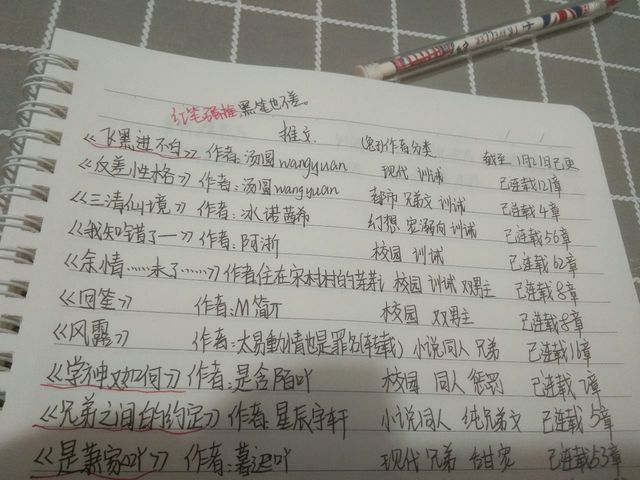 红笔强推黑笔也不差。
推文 (免)作者分类 截至1月21日已更
《飞黑进不白》 作者:汤圆wangyuan 现代 训诫 已连载121章
《反差性格》 作者:汤圆wangyuan 都市 兄弟文 训诫 已连载4章
《三清仙境》 作者:冰诺茜希 幻想 宠溺向训诫 已连载56章
《我知错了一》 作者:阿淅 校园 训诫 已连载62章
《余情……未了……》 作者住在宋木材的 校园 训诫 双男主 已连载8章
《回笙》 作者:M简亓 校园 双男主 已连载8章
《风露》 作者:太易重情也是罪名(转载) 小说同人 兄弟 已连载16章
《学神又如何》 作者:是含陌吖 校园 同人 惩罚 已连载7章
《兄弟之间的约定》 作者:星辰宇轩 小说同人 纯兄弟文 已连载5章
《是萧家吖》 作者:暮迟吖 现代 兄弟 甜宠 已连载53章